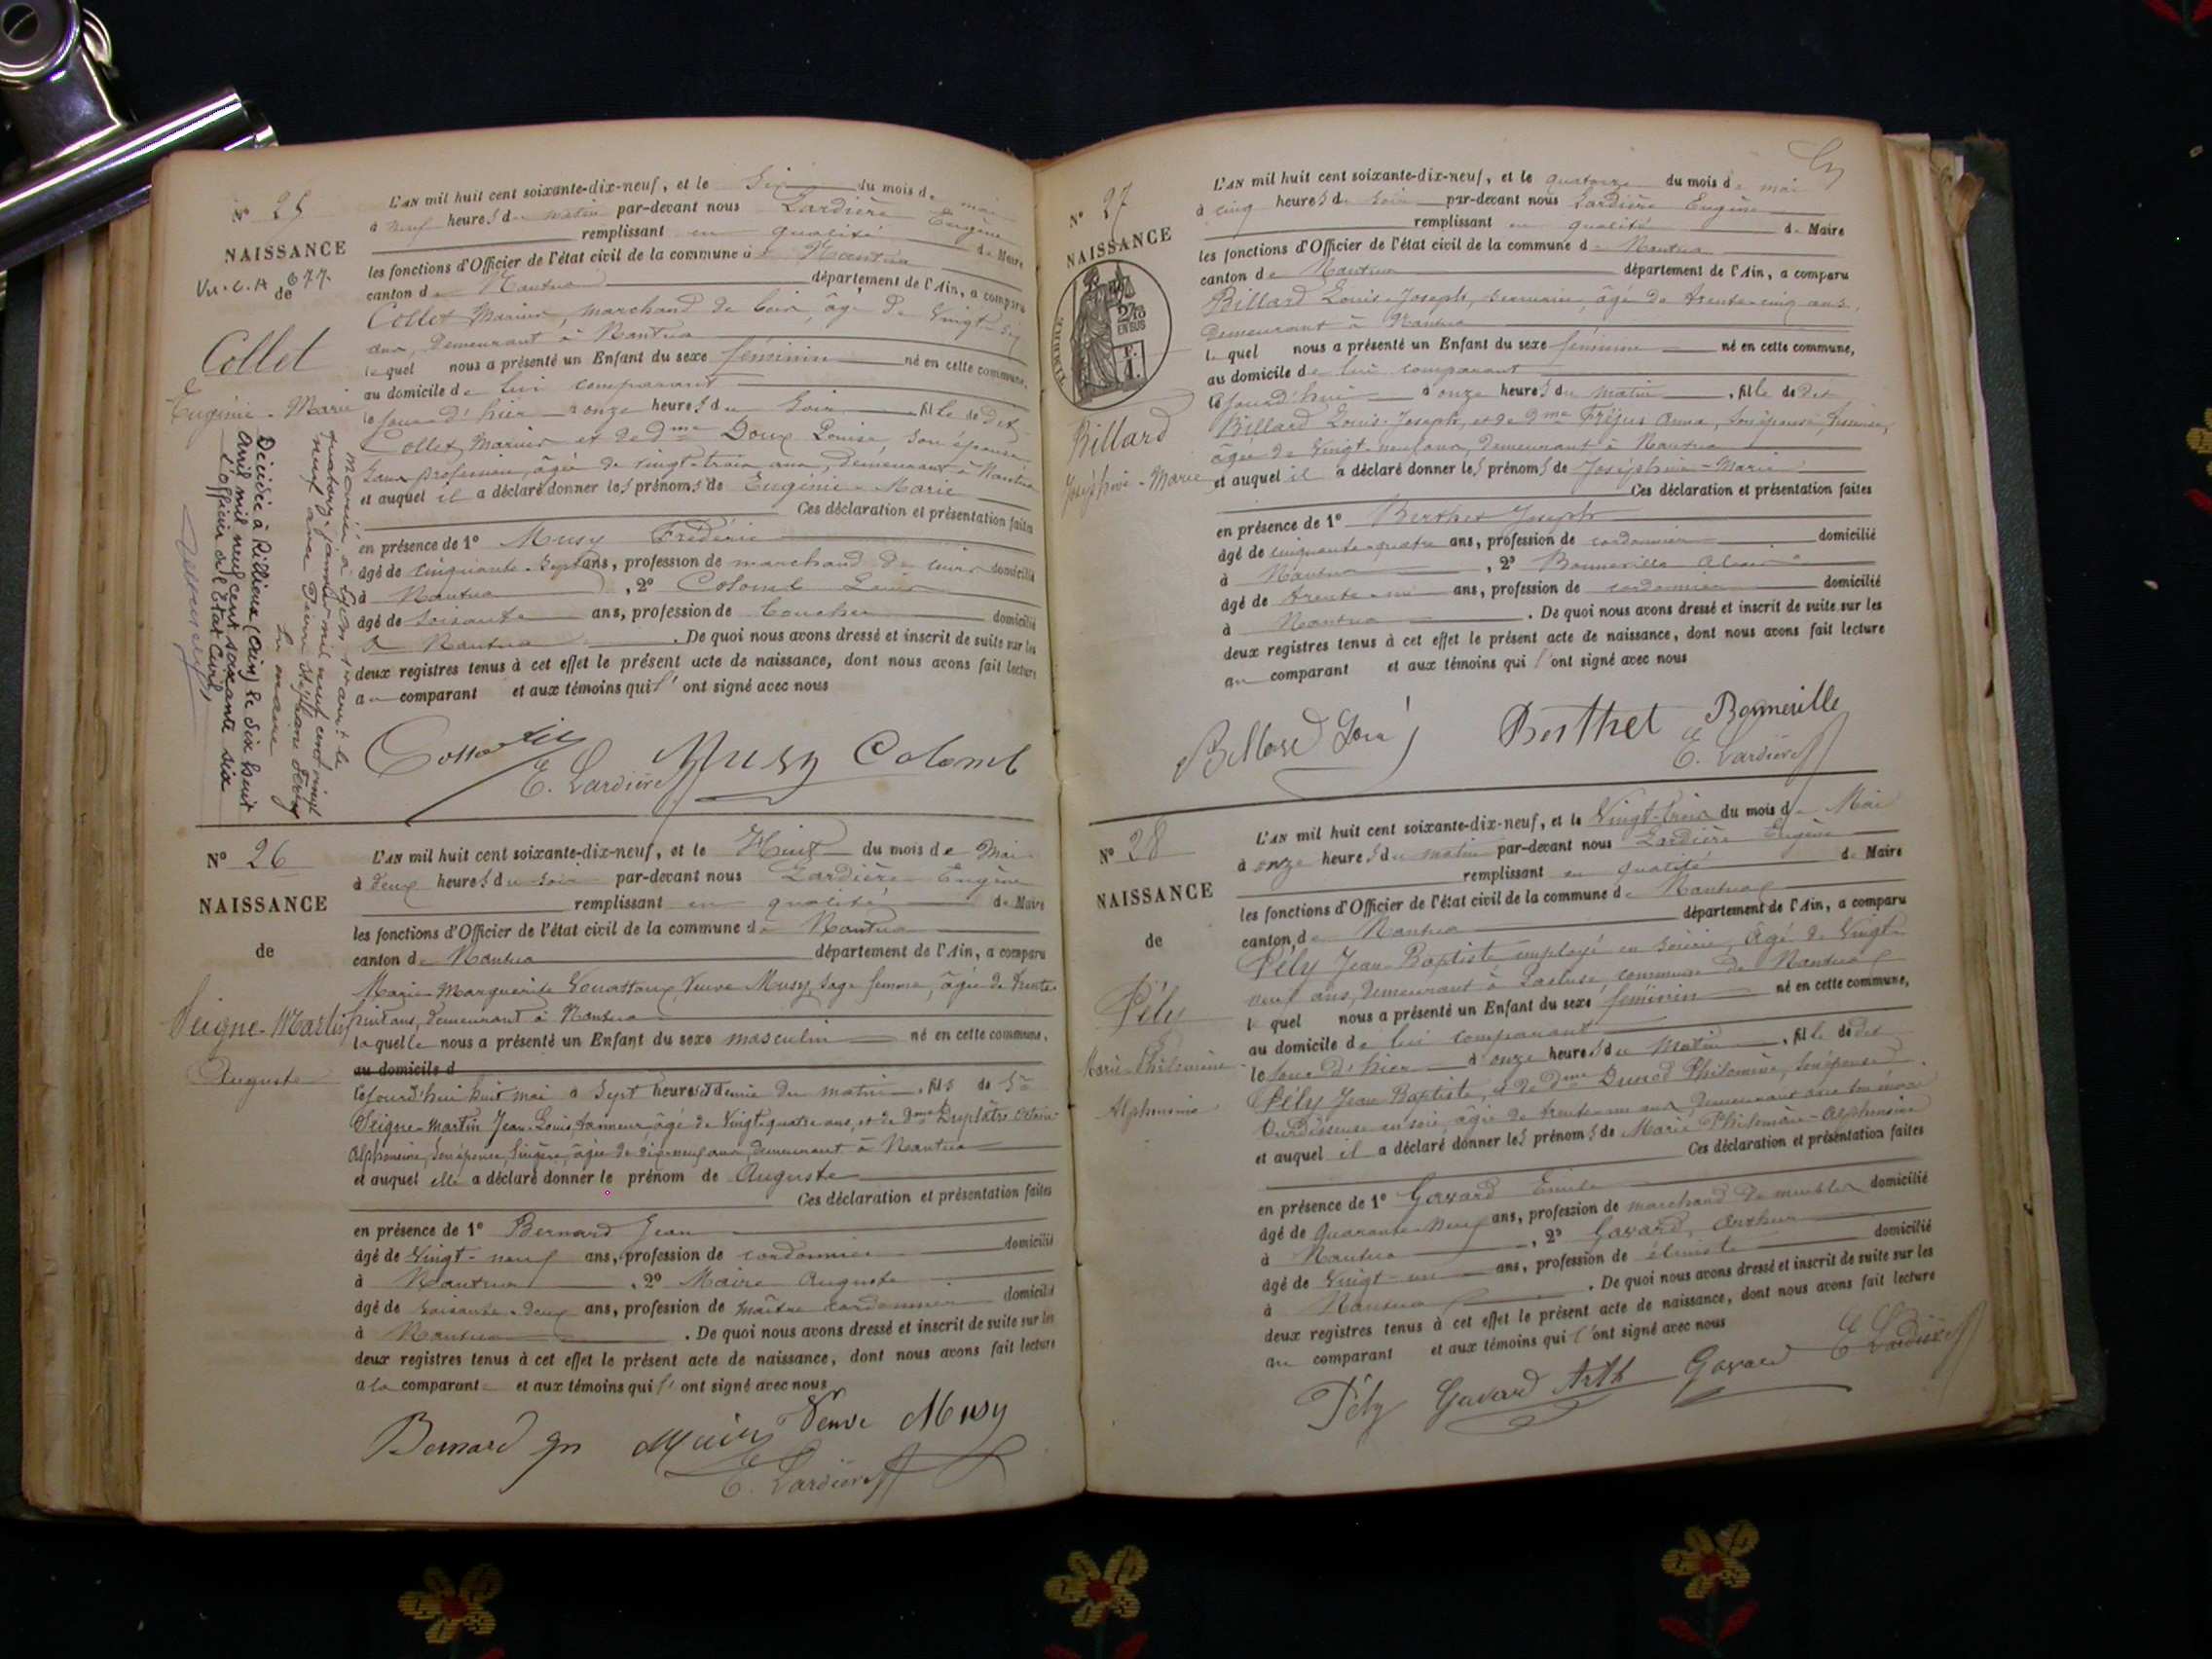 N° 25
NAISSANCE
Vu. C. A 677
de
Collet
Eugénie - Marie
Mariée à Lyon le
quatorze janvier mil neuf cent vingt
neuf avec Pierre Stéphane
Le maire
Décédée à Rillieux (Ain) le dix huit
Avril mil neuf cent soixante six
L'officier de l'Etat Civil,
L'AN mil huit cent soixante-dix-neuf, et le Six du mois de mai
à neuf heures du matin par-devant nous Lardière Eugène
remplissant en qualité de Maire
les fonctions d'Officier de l'état civil de la commune de Nantua
canton de Nantua département de l'Ain, a comparu
Collet Marius, marchand de bois, âgé de Vingt-
ans, demeurant à Nantua
lequel nous a présenté un Enfant du sexe féminin né en cette commune,
au domicile de lui comparant
le jour d'hier à onze heures du Soir, fille de dit
Collet Marius et de dme Doux Louise, Son épouse,
Sans profession, âgée de vingt-trois ans, demeurant à Nantua
et auquel il a déclaré donner les prénoms de Eugénie - Marie
Ces déclaration et présentation faites
en présence de 1° Musy Frédéric
âgé de cinquante-Sept ans, profession de marchand de cuirs domicilié
à Nantua, 2° Colomb Louis
âgé de soixante ans, profession de boucher domicilié
à Nantua. De quoi nous avons dressé et inscrit de suite sur les
deux registres tenus à cet effet le présent acte de naissance, dont nous avons fait lecture
au comparant et aux témoins qui l'ont signé avec nous
E. Lardière Musy Colomb
N° 26
NAISSANCE
de
Seigne-Martin
Auguste
L'AN mil huit cent soixante-dix-neuf, et le Huit du mois de Mai
à deux heures du soir par-devant nous Lardière Eugène
remplissant en qualité de Maire
les fonctions d'Officier de l'état civil de la commune de Nantua
canton de Nantua département de l'Ain, a comparu
Marie-Marguerite Veuve Musy, Sage femme, âgée de trente
huit ans, demeurant à Nantua
laquelle nous a présenté un Enfant du sexe masculin né en cette commune,
au domicile d
le jourd'hui huit mai à Sept heures et demie du matin, fils de Sr
Seigne-Martin Jean-Louis, tanneur, âgé de Vingt-quatre ans, et de dme
Alphonsine, Son épouse, lingère, âgée de dix-neuf ans, demeurant à Nantua
et auquel elle a déclaré donner le prénom de Auguste
Ces déclaration et présentation faites
en présence de 1° Bernard Jean
âgé de Vingt-neuf ans, profession de cordonnier domicilié
à Nantua, 2° Maire Auguste
âgé de soixante-deux ans, profession de maître cordonnier domicilié
à Nantua. De quoi nous avons dressé et inscrit de suite sur les
deux registres tenus à cet effet le présent acte de naissance, dont nous avons fait lecture
a la comparante et aux témoins qui l'ont signé avec nous
Bernard Veuve Musy
E. Lardière
N° 27
NAISSANCE
TIMBRE
2/10
EN SUS
F.
1.
Billard
Joséphine - Marie
L'AN mil huit cent soixante-dix-neuf, et le quatorze du mois de mai
à cinq heures du Soir par-devant nous Lardière Eugène
remplissant en qualité de Maire
les fonctions d'Officier de l'état civil de la commune de Nantua
canton de Nantua département de l'Ain, a comparu
Billard Louis-Joseph, âgé de trente-cinq ans,
demeurant à Nantua
lequel nous a présenté un Enfant du sexe féminin né en cette commune,
au domicile de lui comparant
le jourd'hui à onze heures du matin, fille de dit
Billard Louis-Joseph, et de dme Fréjus Anna, Son épouse,
âgée de Vingt-neuf ans, demeurant à Nantua
et auquel il a déclaré donner les prénoms de Joséphine - Marie
Ces déclaration et présentation faites
en présence de 1° Berthet Joseph
âgé de cinquante-quatre ans, profession de cordonnier domicilié
à Nantua, 2° Bonneville
âgé de trente-un ans, profession de cordonnier domicilié
à Nantua. De quoi nous avons dressé et inscrit de suite sur les
deux registres tenus à cet effet le présent acte de naissance, dont nous avons fait lecture
au comparant et aux témoins qui l'ont signé avec nous
Berthet Bonneville
E. Lardière
N° 28
NAISSANCE
de
Pély
Marie-Philomène
Alphonsine
L'AN mil huit cent soixante-dix-neuf, et le Vingt-trois du mois de Mai
à onze heures du matin par-devant nous Lardière Eugène
remplissant en qualité de Maire
les fonctions d'Officier de l'état civil de la commune de Nantua
canton de Nantua département de l'Ain, a comparu
Pély Jean-Baptiste employé en soierie, Agé de Vingt-
neuf ans, demeurant à Lacluse, commune de Nantua
lequel nous a présenté un Enfant du sexe féminin né en cette commune,
au domicile de lui comparant
le jour d'hier à onze heures du Matin, fille de dit
Pély Jean-Baptiste, et de Dme Dunod Philomène, Son épouse,
Ourdisseuse en soie, âgée de trente-un ans, demeurant avec Son mari
et auquel il a déclaré donner les prénoms de Marie Philomène-Alphonsine
Ces déclaration et présentation faites
en présence de 1° Gavard Emile
âgé de Quarante-Neuf ans, profession de marchand de meubles domicilié
à Nantua, 2° Gavard, Arthur
âgé de Vingt-un ans, profession de ébéniste domicilié
à Nantua. De quoi nous avons dressé et inscrit de suite sur les
deux registres tenus à cet effet le présent acte de naissance, dont nous avons fait lecture
au comparant et aux témoins qui l'ont signé avec nous
Pély Gavard Arth Gavard E. Lardière